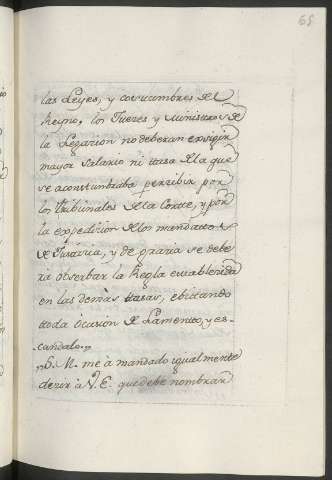 65
las Leyes, y costumbres de el
Reyno, los Jueces y Ministros de
la Legacion no deberan exsigir
mayor salario ni tasa de la que
se acostumbraba percibir por
los tribunales de la Corte, y por
la expedicion de los mandatos
de Justicia, y de gracia se debe
ra obserbar la Regla establecida
en las demàs tasas, ebitando
toda ocasion de Lamento, y es-
candalo.,,
,,S. M. me à mandado igualmente
decir à V. E. que debe nombrar